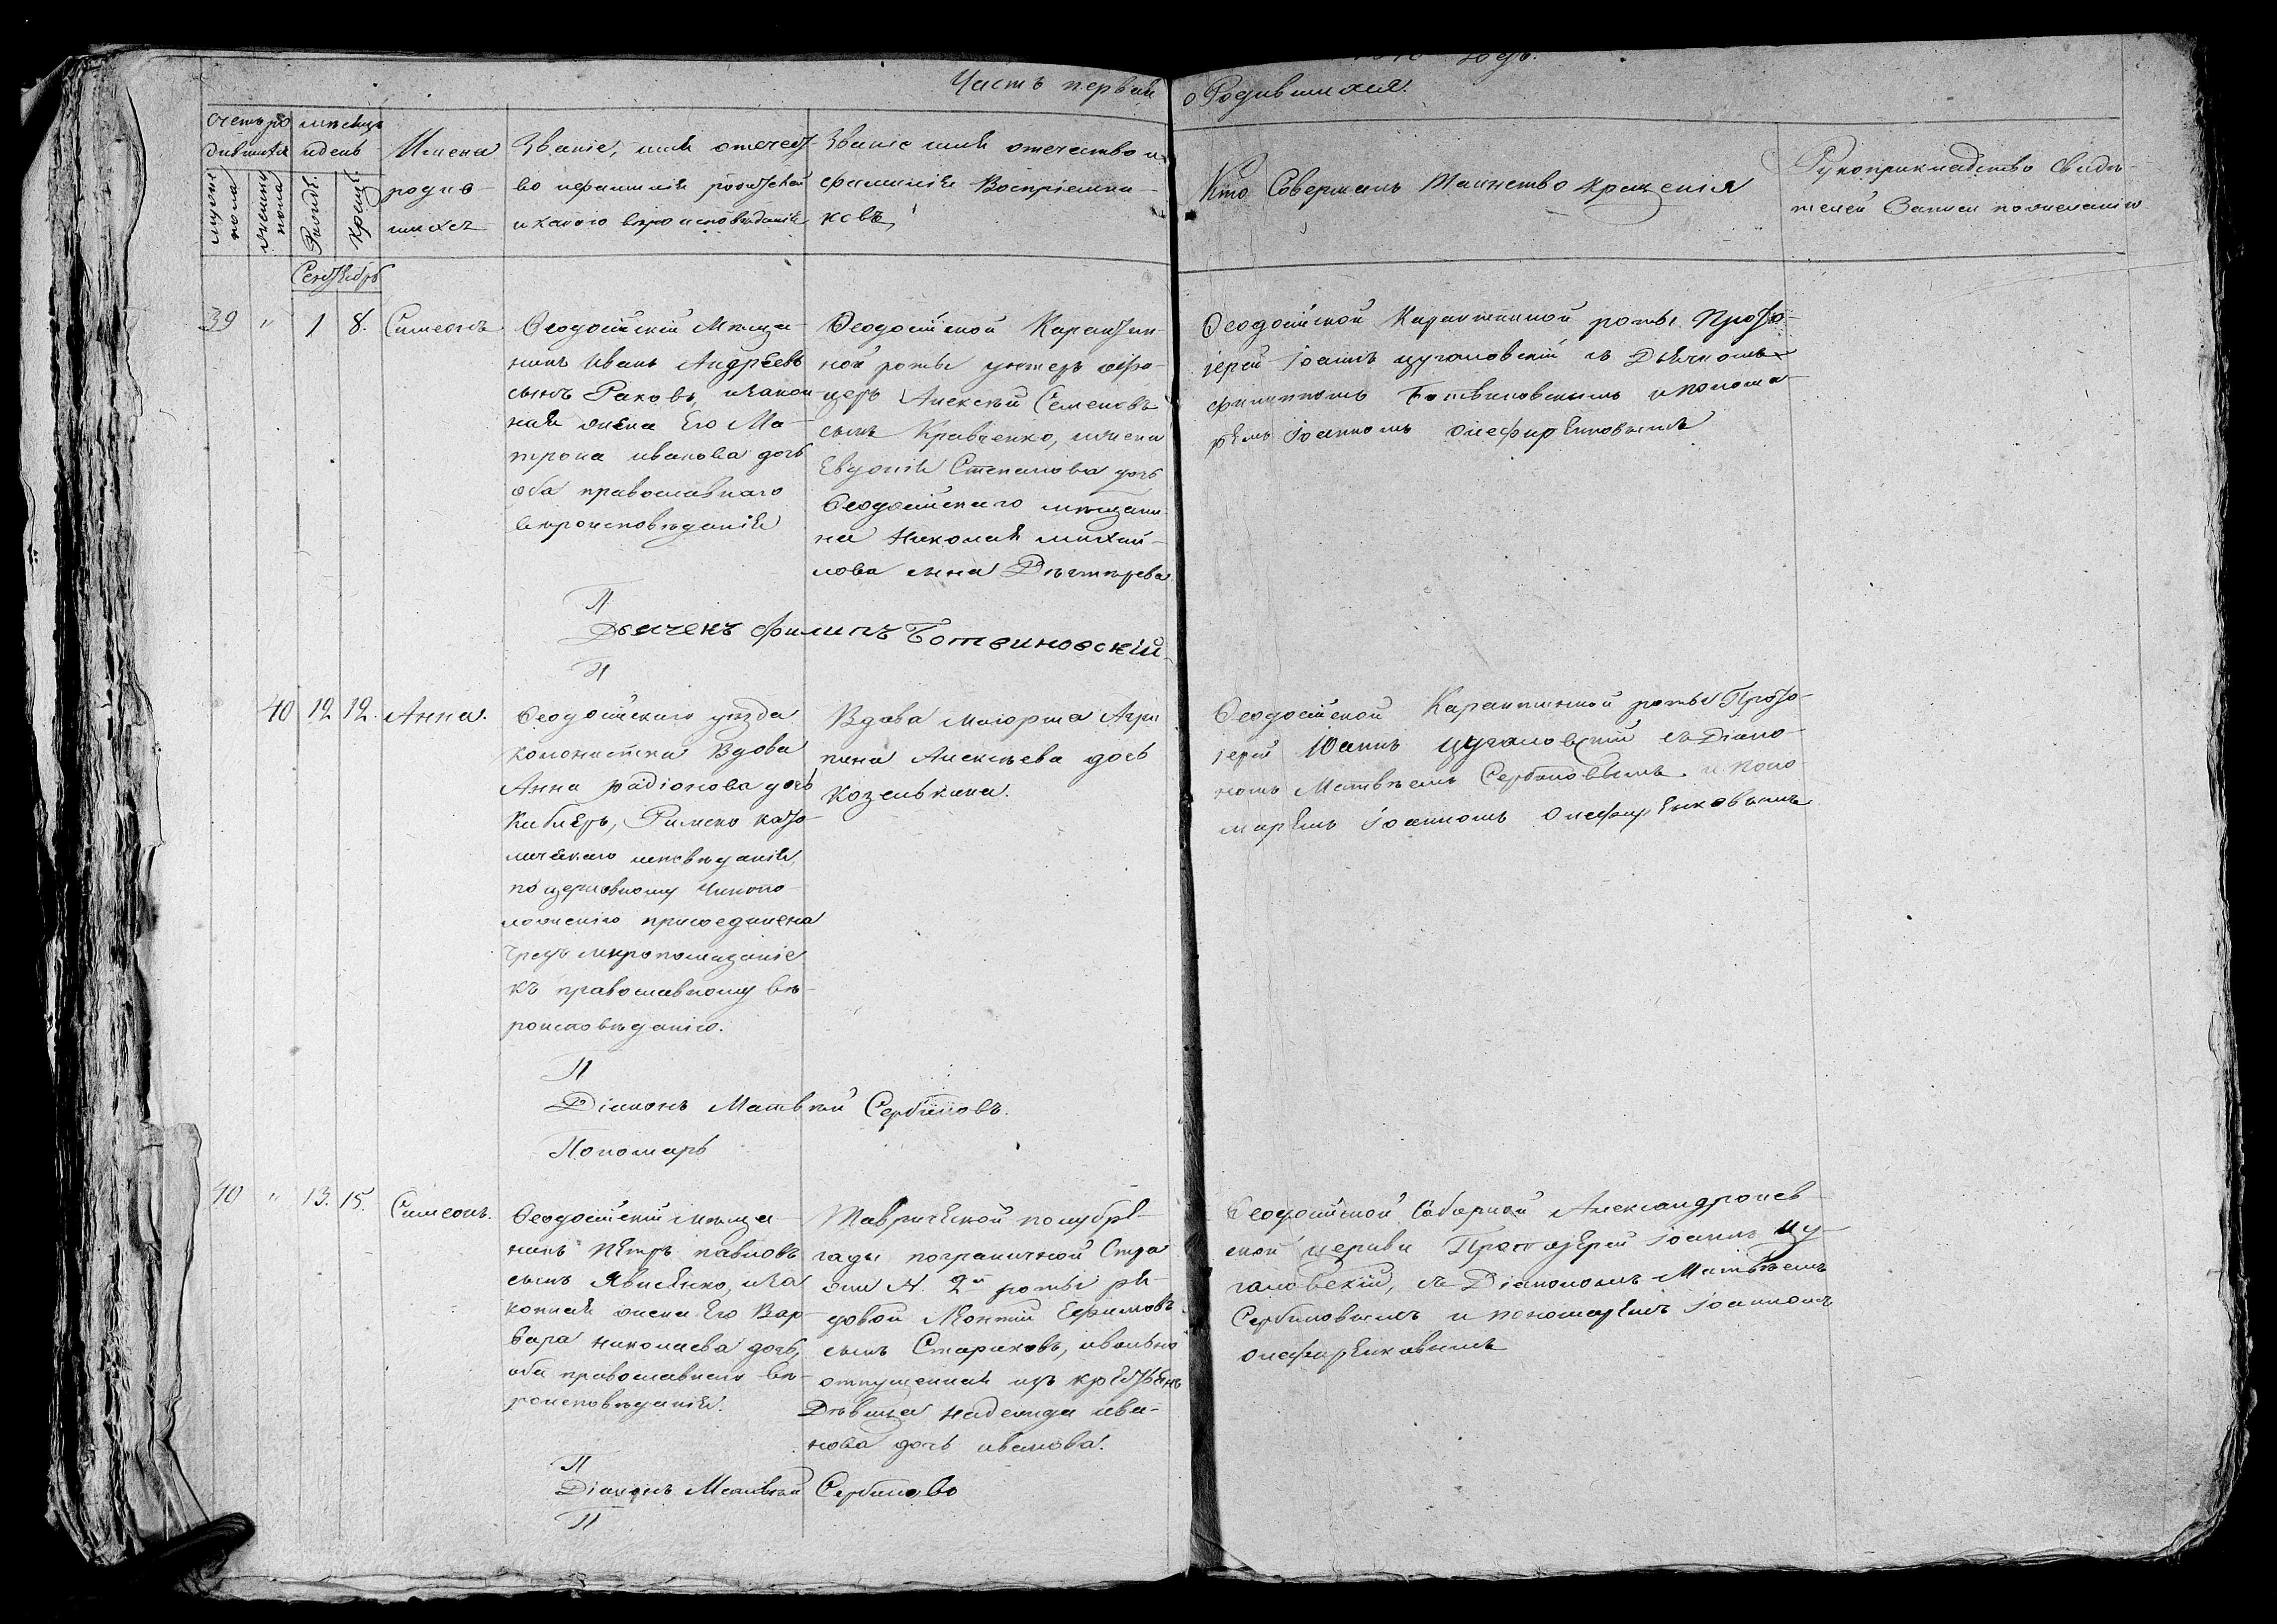 Часть первая
о Родившихся.
годъ.
Счетъ ро
дившихся
мужеска
пола
женска
пола
месяцъ
и день
Рожде.
Креще.
Имена
родив-
шихся
Званіе, имя отечест-
во и фамилія родителей
и какого вероисповеданія
Званіе имя отечество и
фамилія Воспріемни-
ковъ,
Кто Совершалъ Таинство крещенія
Рукоприкладство свиде-
телей Записи по желанію
Сентябрь
39 " 1 8. Симеонъ
Феодосійскій Меща-
нинъ Иванъ Андреевъ
сынъ Раковъ, и закон-
ная жена Его Ма-
трона иванова дочь
оба православнаго
вероисповеданія
Феодосійской Карантин-
ной роты унтеръ офи-
церъ Алексей Семеновъ
сынъ Кравченко, и жена
Евдокія Степанова дочь
Феодосійскаго мещани-
на Николая михай-
лова жена Дегтярева
Феодосійской Карантинной роты Прото-
іерей Іоаннъ цугаловскій съ Дьячкомъ
филиппомъ Ботвиновскимъ и понома-
ремъ Іоанномъ олефиренковымъ
П
Дьячекъ Филипъ Ботвиновскій
П
40 12 12. Анна.
Феодосійскаго уезда
колонистка Вдова
Анна радіонова дочь
Киблеръ, Римско като-
лическаго исповеданія,
по церковному Чинопо-
ложенію присоединена
чрезъ миропомазаніе
къ православному ве-
роисповеданію.
Вдова маіорша Агри
пина Алексеева дочь
Козелькина.
Феодосійской Карантинной роты Прото-
іерей Іоаннъ Цугаловскій съ Діако-
номъ Матвеемъ Сербиновымъ и поно-
маремъ Іоанномъ Олефиренковымъ
П
Діаконъ Матвей Сербиновъ.
Пономарь
40 " 13. 15. Симеонъ.
Феодосійскій меща-
нинъ Петръ павловъ
сынъ Явисенко, и за
конная жена Его Вар-
вара николаева дочь,
оба православнаго ве-
роисповеданія.
Таврической полубри-
гады пограничной Стра
жи N. 2й роты ря-
довой Леонтій Ефимовъ
сынъ Стариковъ, и вольно
отпущенная изъ крестьянъ
Девица надежда ива-
нова дочь иванова.
Феодосійской Соборной Александронев-
ской церкви Протоіерей Іоаннъ Цу-
галовскій, съ Діакономъ Матвеемъ
Сербиновымъ и пономаремъ Іоанномъ
олефиренковымъ
П
Діаконъ Матвей Сербиновъ
П